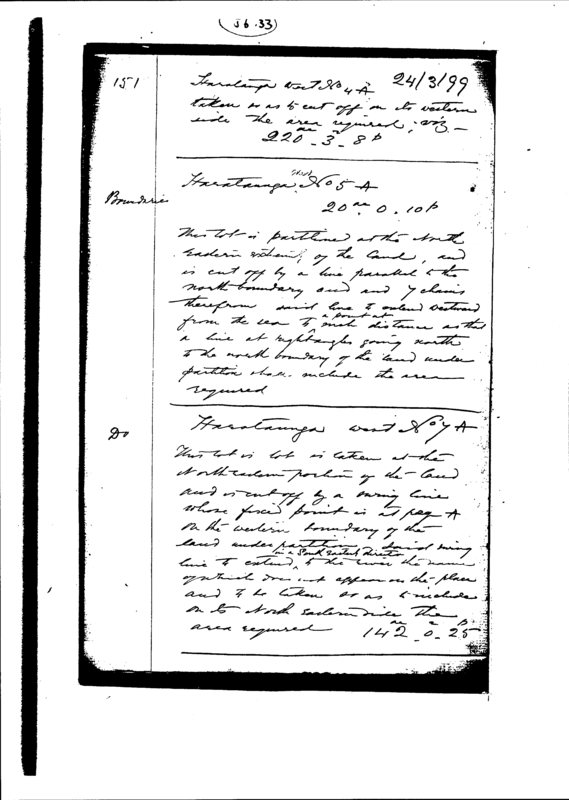 56.33
151
Harataunga West No 4 A 24/3/99
taken so as to cut off on its western
side the area required; viz –
220 ac – 3 r – 8 p
Boundaries
Harataunga West No 5 A
20 ac. 0 . 10 p
This lot is partitioned at the North
Eastern of the land, and
is cut off by a line parallel to the
north boundary and 7 chains
therefrom said line to extend westward
from the sea to a point at such distance as that
a line at right angles going north
to the north boundary of the land under
partition shall include the area
required
Do
Harataunga West No 7 A
This lot is lot is taken at the
North eastern portion of the land
and is cut off by a swing line
whose fixed point is at peg A
on the western boundary of the
land under partition, said swing
line to extend in a South Easterly direction to the river the name
of which does not appear on the place
and to be taken so as to include
on its North Eastern side the
area required 142 ac – 0 r – 25 p.